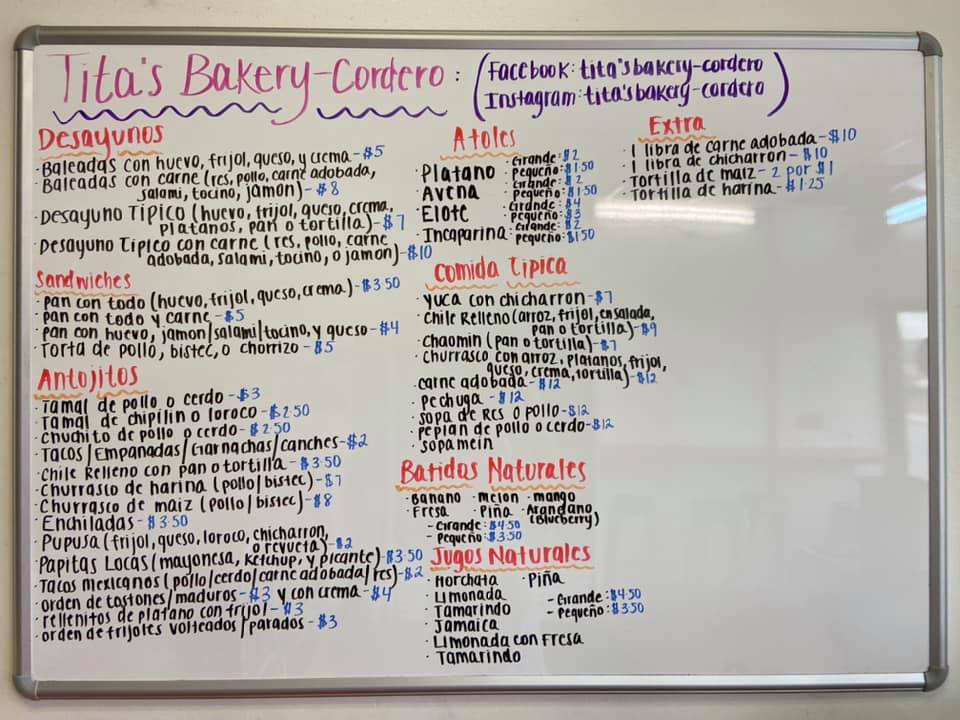 Tita's Bakery-Cordero : (Facebook: tita'sbakery-cordero
Instagram: tita'sbakery-cordero)
Desayunos
· Baleadas con huevo, frijol, queso, y crema - $5
· Baleadas con carne (res, pollo, carne adobada,
salami, tocino, jamon) - $8
· Desayuno Tipico (huevo, frijol, queso, crema,
platanos, pan o tortilla) - $7
· Desayuno Tipico con carne (res, pollo, carne
adobada, salami, tocino, o jamon) - $10
Sandwiches
· pan con todo (huevo, frijol, queso, crema) - $3.50
· pan con todo y carne - $5
· pan con huevo, jamon/salami/tocino, y queso - $4
· Torta de pollo, bistec, o chorrizo - $5
Antojitos
· Tamal de pollo o cerdo - $3
· Tamal de chipilin o loroco - $2.50
· Chuchito de pollo o cerdo - $2.50
· Tacos/Empanadas/Garnachas/canches - $2
· Chile Relleno con pan o tortilla - $3.50
· Churrasco de harina (pollo/bistec) - $7
· Churrasco de maiz (pollo/bistec) - $8
· Enchiladas - $3.50
· Pupusa (frijol, queso, loroco, chicharron,
o revueta) - $2
· Papitas Locas (mayonesa, ketchup, y picante) - $3.50
· Tacos mexicanos (pollo/cerdo/carne adobada/res) - $2
· orden de tostones/maduros - $3 y con crema - $4
· rellenitos de platano con frijol - $3
· orden de frijoles volteados/parados - $3
Atoles
· Platano · Grande: $2
· Pequeño: $1.50
· Avena · Grande: $2
· Pequeño: $1.50
· Elote · Grande: $4
· Pequeño: $3
· Incaparina · Grande: $2
· Pequeño: $1.50
Comida Tipica
· yuca con chicharron - $7
· Chile Relleno (arroz, frijol, ensalada,
pan o tortilla) - $9
· chaomin (pan o tortilla) - $7
· Churrasco con arroz, platanos, frijol,
queso, crema, tortilla) - $12
· carne adobada - $12
· pechuga - $12
· sopa de Res o pollo - $12
· pepian de pollo o cerdo - $12
· sopamein
Batidos Naturales
· Banano · Melon · mango
· Fresa · Piña · Arandano
(Blueberry)
- Grande: $4.50
- Pequeño: $3.50
Jugos Naturales
· Horchata · Piña
· Limonada - Grande: $4.50
· Tamarindo - Pequeño: $3.50
· Jamaica
· Limonada con Fresa
· Tamarindo
Extra
· 1 libra de carne adobada - $10
· 1 libra de chicharron - $10
· Tortilla de maiz - 2 por $1
· Tortilla de harina - $1.25